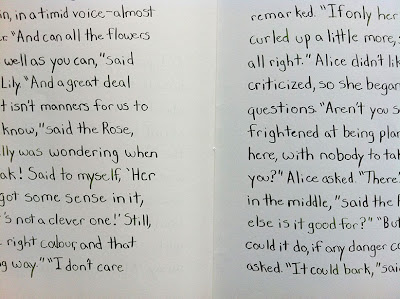 in, in a timid voice–almost
"And can all the flowers
well as you can," said
Lily. "And a great deal
t isn't manners for us to
know," said the Rose,
lly was wondering when
ak! Said to myself, 'Her
got some sense in it,
's not a clever one!' Still,
right colour, and that
g way." "I don't care
remarked. "If only her
curled up a little more, s
all right." Alice didn't lik
criticized, so she began
questions. "Aren't you s
frightened at being plan
here, with nobody to tak
you?" Alice asked. "There'
in the middle," said the R
else is it good for?" "But
could it do, if any danger co
asked. "It could bark," said